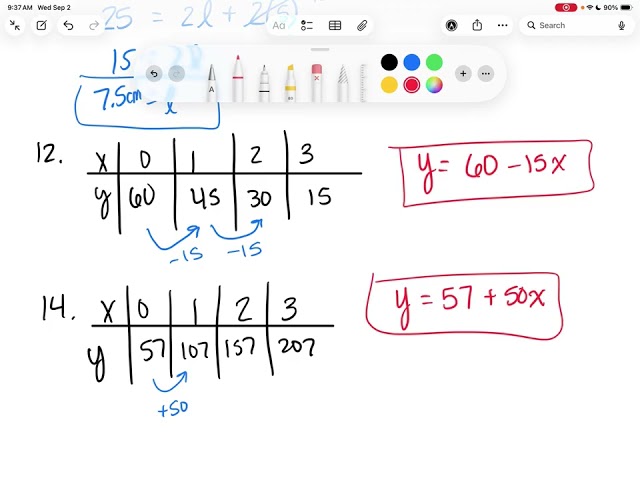 9:37AM Wed Sep 2
90%
Aa
Search
25 = 2l + 2(5)
15
7.5cm = l
A
12. x 0 1 2 3
y 60 45 30 15
-15 -15
y = 60 - 15x
14. x 0 1 2 3
y 57 107 157 207
+50
y = 57 + 50x